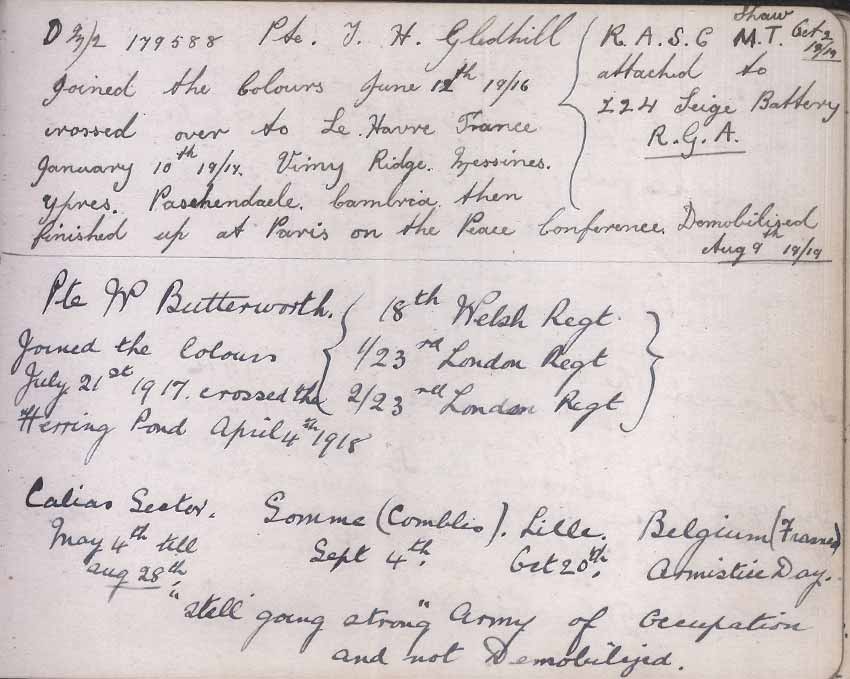 D M/2 179588 Pte. J. H. Gledhill
Joined the Colours June 12th 19/16
crossed over to Le. Havre France
January 10th 19/17. Vimy Ridge. Messines.
Ypres. Paschendaele. Cambria. then
finished up at Paris on the Peace Conference. Demobilised
Aug 9th 19/19
Shaw Oct 2 19/19
R. A. S. C M.T.
attached to
224 Seige Battery
R. G. A.
Pte W Butterworth.
Joined the Colours
July 21st 1917. crossed the
Herring Pond April 4th 1918
18th Welsh Regt.
1/23rd London Regt
2/23rd London Regt
Calias Sector. Somme (Comblis). Lille. Belgium (Frasnes)
May 4th till Sept 4th. Oct 20th. Armistice Day.
Aug 28th.
"still going strong" Army of Occupation
and not Demobilized.